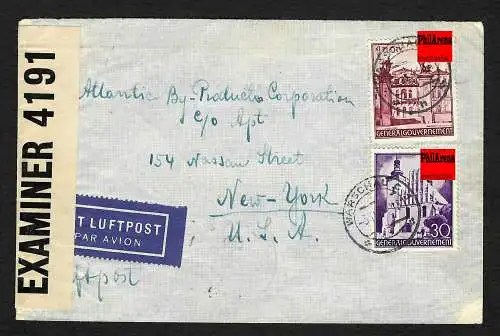 EXAMINER 4191
Atlantic By-Products Corporation
c/o Apt
154 Nassau Street
New-York
U.S.A.
T LUFTPOST
PAR AVION
ftpost
PhilArena
GENERALGOUVERNEMENT
PhilArena
WARSCHAU
GENERALGOUVERNEMENT
30